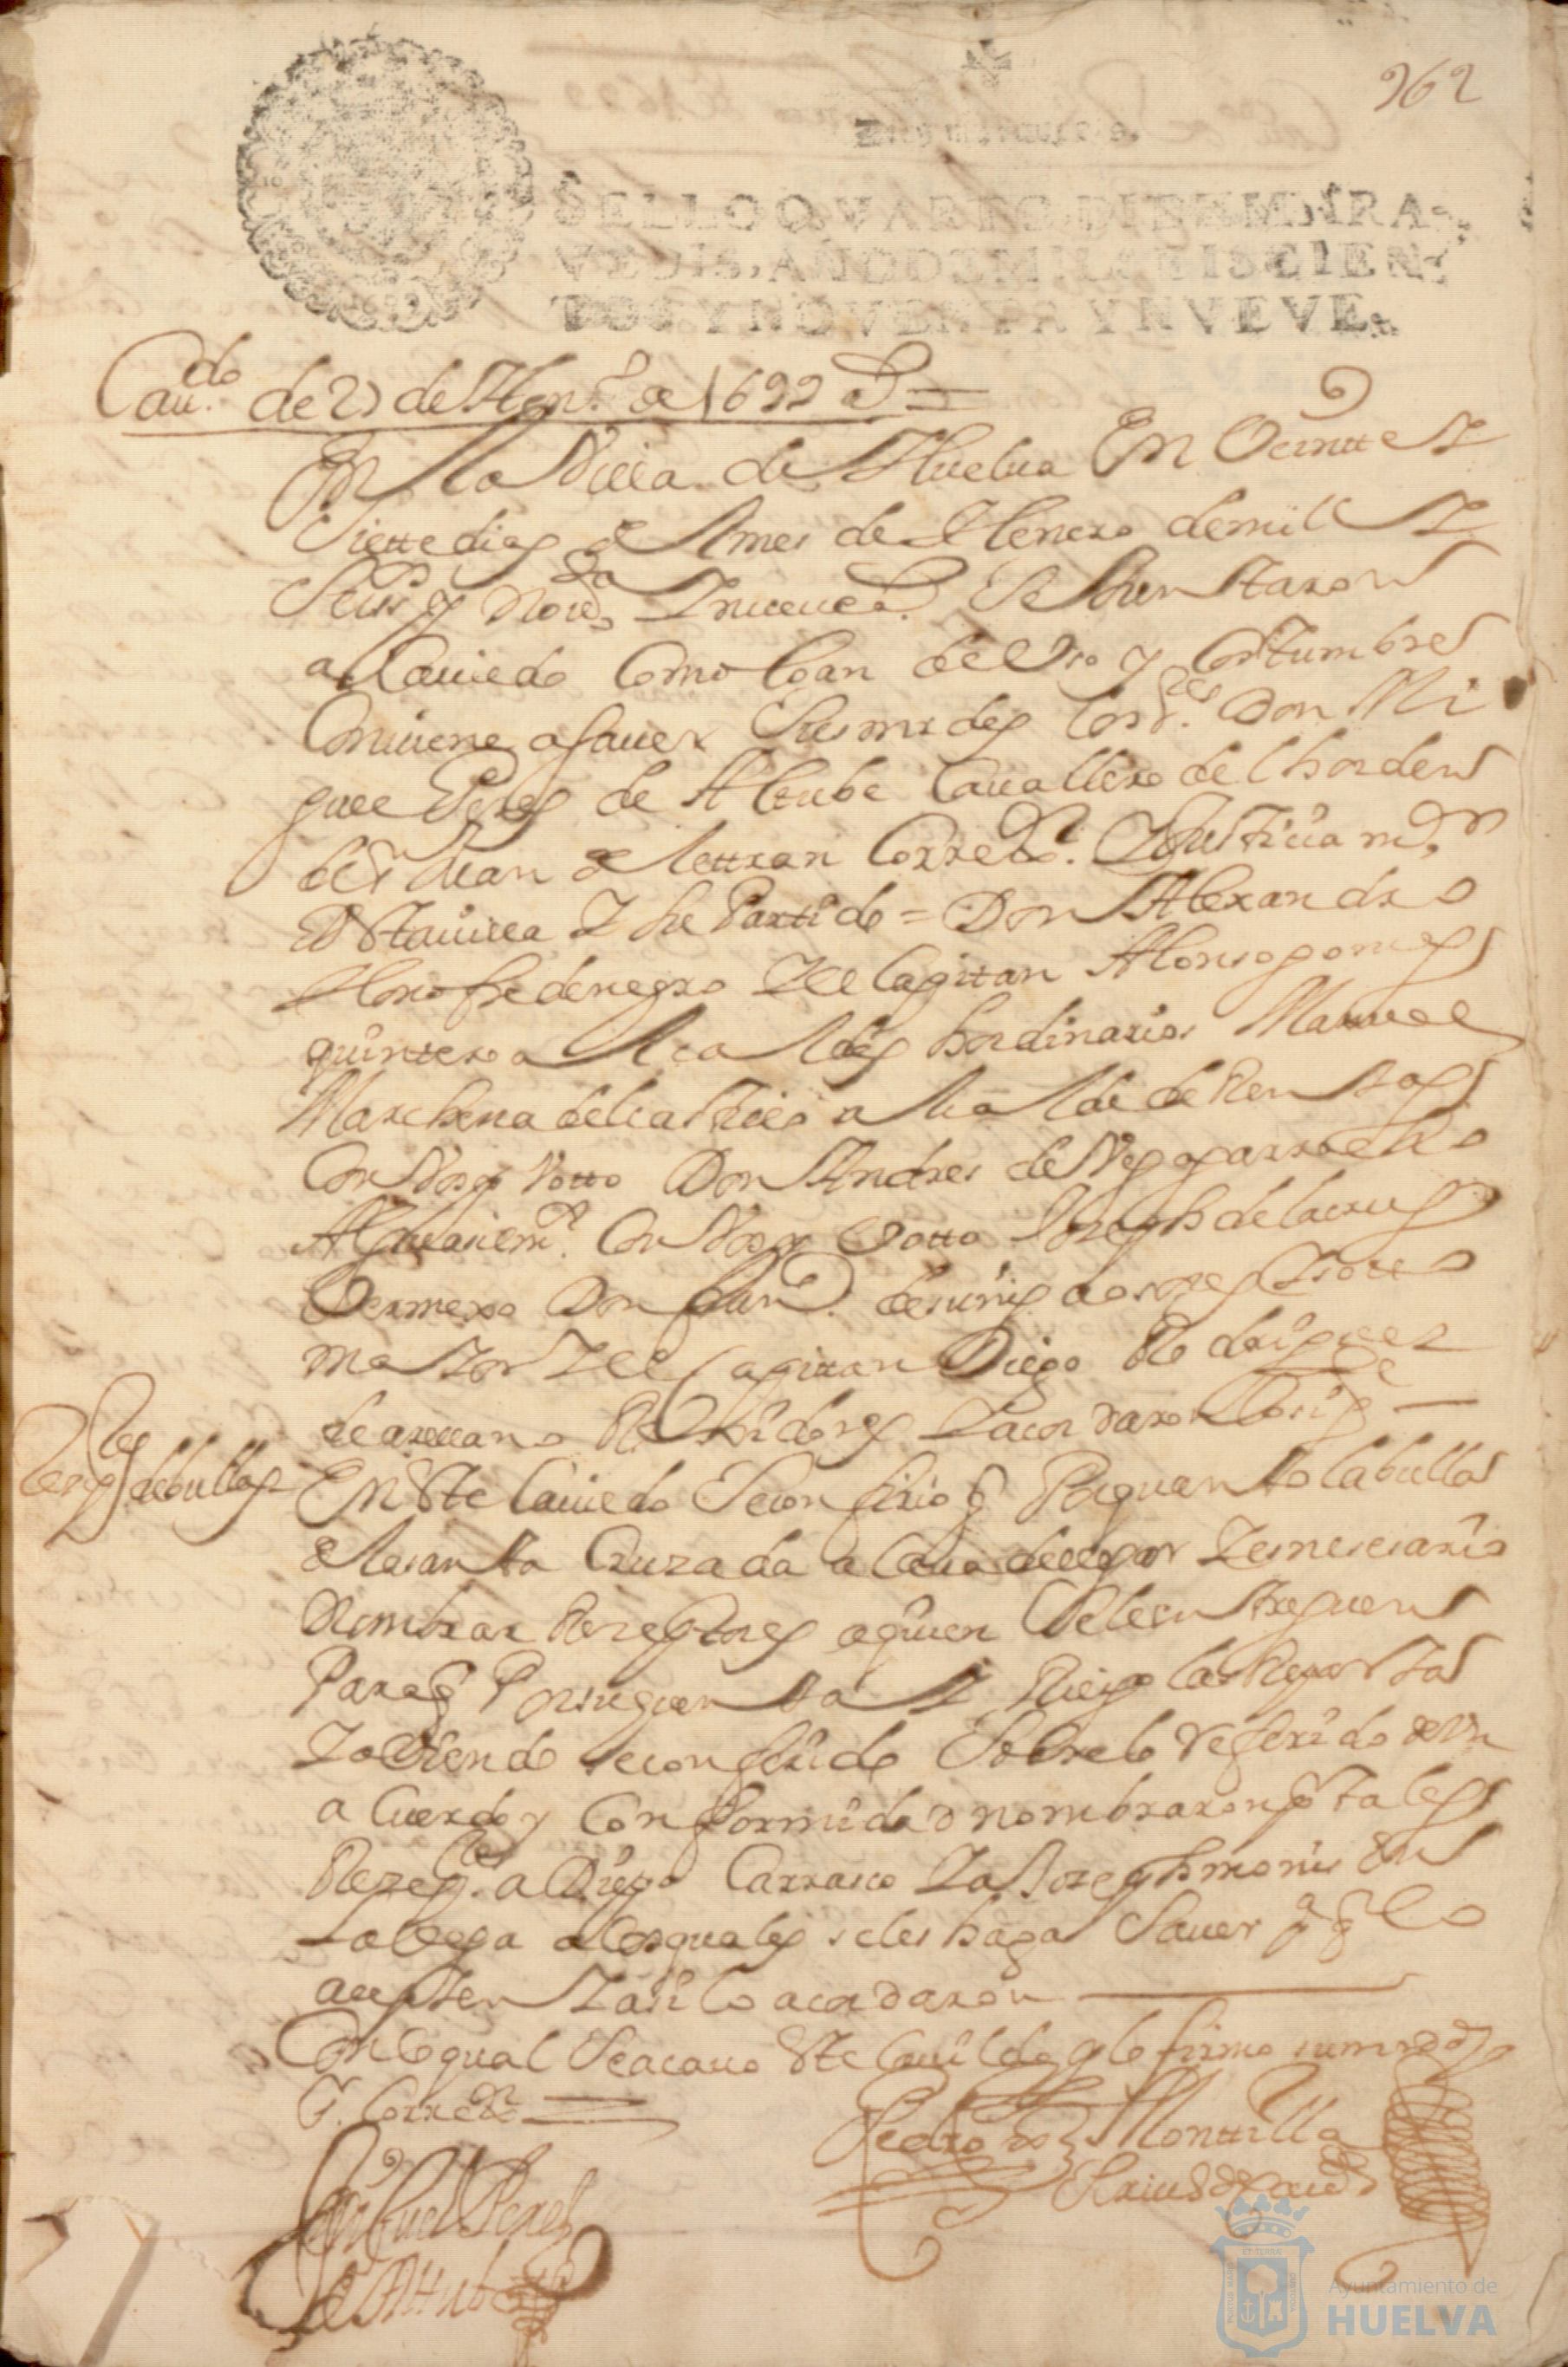 962
SELLO QVARTO, DIEZ MARA
VEDIS, AÑO DE MIL Y SEISCIEN
TOS Y NOVENTA Y NVEVE.
Caudo. de 27 de Hen.º de 1699 as =
En la Villa de Huelua En Veintte y
siette dias de el mes de Henero de mill y
Seisy nobta y nueue as. Se Juntaron
a Cauildo Como lo an de Uso y Costumbre
Conuiene a sauer Sus mrdes los Sres. Don Mi
guel Perez de Altube Cauallero del horden
de Sn Juan de lettran Corregor. y Justicia mor
de esta uilla y su Partido = Don Alexandro
Honofre de negro y el Capittan Alonso gomes
quintero Alcaldes hordinarios Manuel
Marchena del castillo alcalde de Rentas
Con Vos y Votto Don Andres de Vega garrocho
Alguasil mr. Con Vos y Votto Joseph de la cruz
Vermexo Don Ferndo. de suñiga rexidor
maior y el Capittan Diego Rodrigues
de arellano Rexidores y acordaron lo sigte
Rezes de bullas
En este Cauildo Se confirio q Por quanto la bullas
de la santa Cruzada a de llegar y es nesesario
Nombrar Rezeptores a quien Se le entreguen
Para q Por su quenta y Riezgo las Repartas
y abiendo se conferido Sobre lo referido de Un
a Cuerdo y Conformidad nombraron por tales
Rezepres. a Diego Carrasco y a Joseph monis de
la Vega a los quales se les haga Sauer pa q lo
aceptten y asi lo acordaron
Con lo qual Se acauo este Cauildo q lo firmo su mrd del
Sr. Corregor =
Miguel Perez
de Altube
Pedro Montilla
Scriuo de cauido
Ayuntamiento de
HUELVA